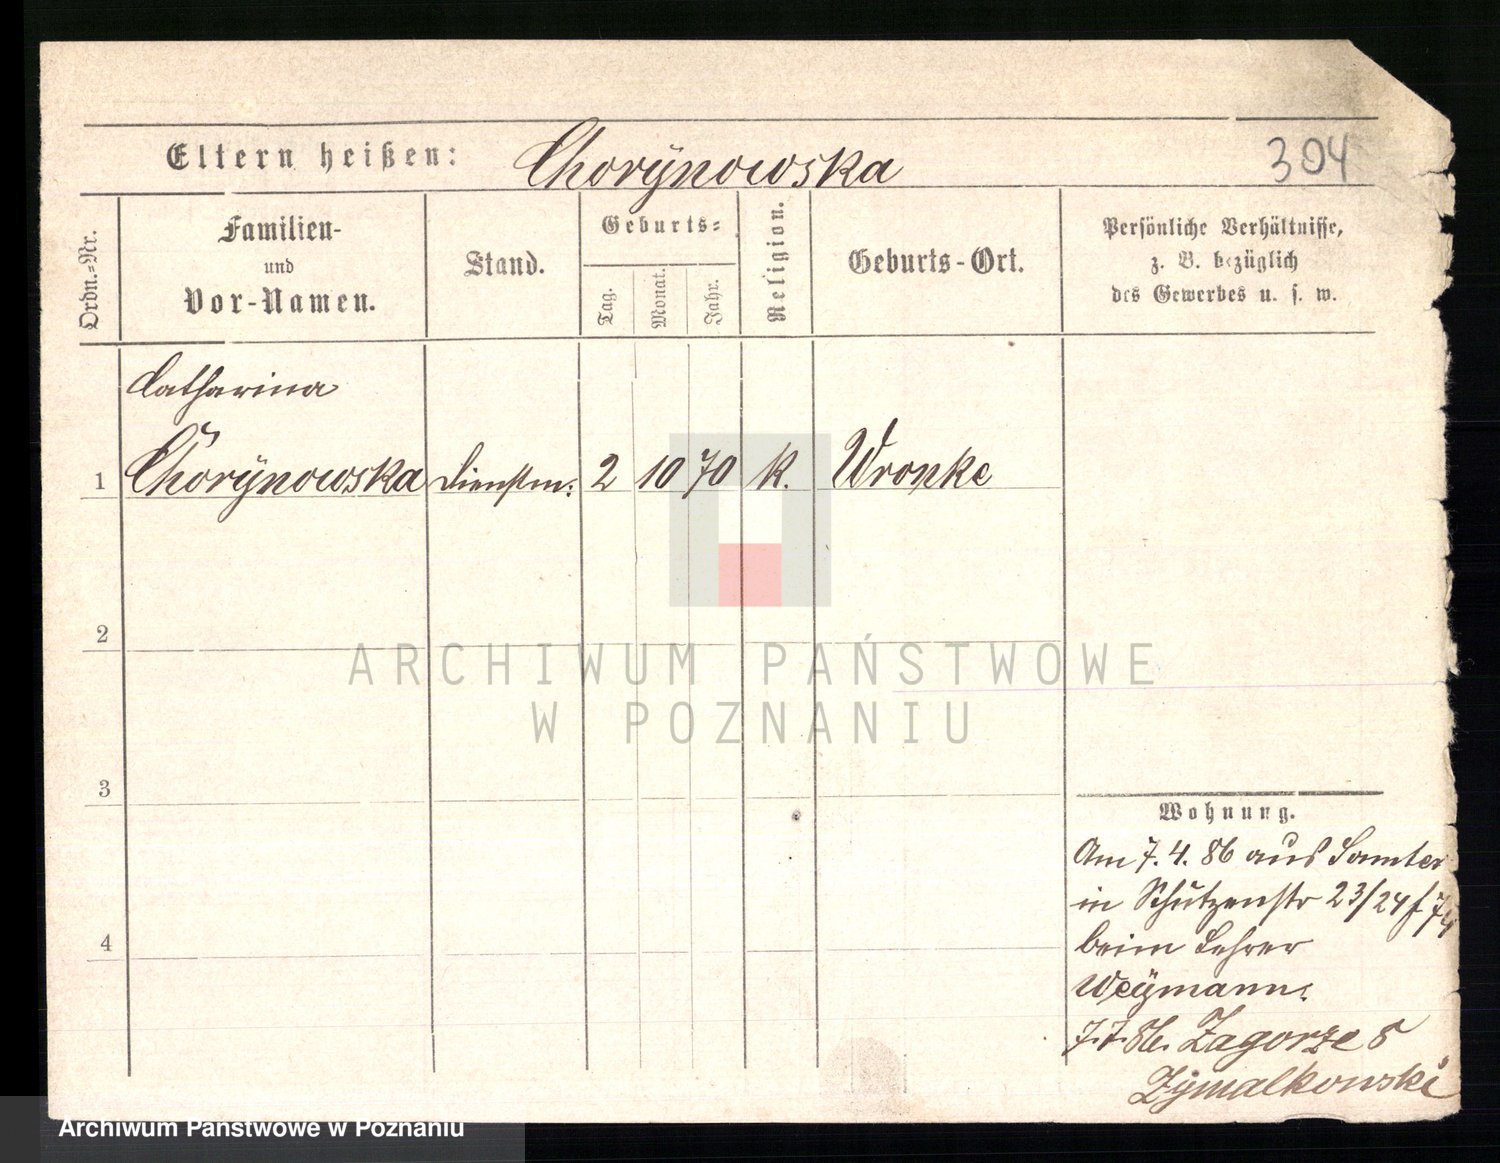 304
Eltern heißen: Chorÿnowska
Ordn.=Nr.
Familien-
und
Vor-Namen.
Stand.
Geburts=
Tag.
Monat.
Jahr.
Religion.
Geburts-Ort.
Persönliche Verhältnisse,
z. B. bezüglich
des Gewerbes u. s. w.
Catharina
1 Chorÿnowska Dienstm: 2 10 70 k. Wronke
2
3
4
Wohnung.
Am 7.4.86 aus Samter
in Schützenstr 23/24
beim Lehrer
Weÿmann.
7.7.86. Zagorze 8
Zÿmalkowski
ARCHIWUM PAŃSTWOWE
W POZNANIU
Archiwum Państwowe w Poznaniu